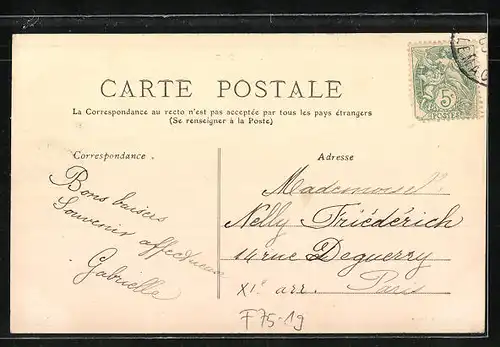 CARTE POSTALE
La Correspondance au recto n'est pas acceptée par tous les pays étrangers
(Se renseigner à la Poste)
Correspondance .
Bons baisers
Souvenir affectueux
Gabrielle
Adresse
Mademoisel
Nelly Friédérich
14 rue Deguerry
XIe arr. Paris
5c
POSTES
F75-19